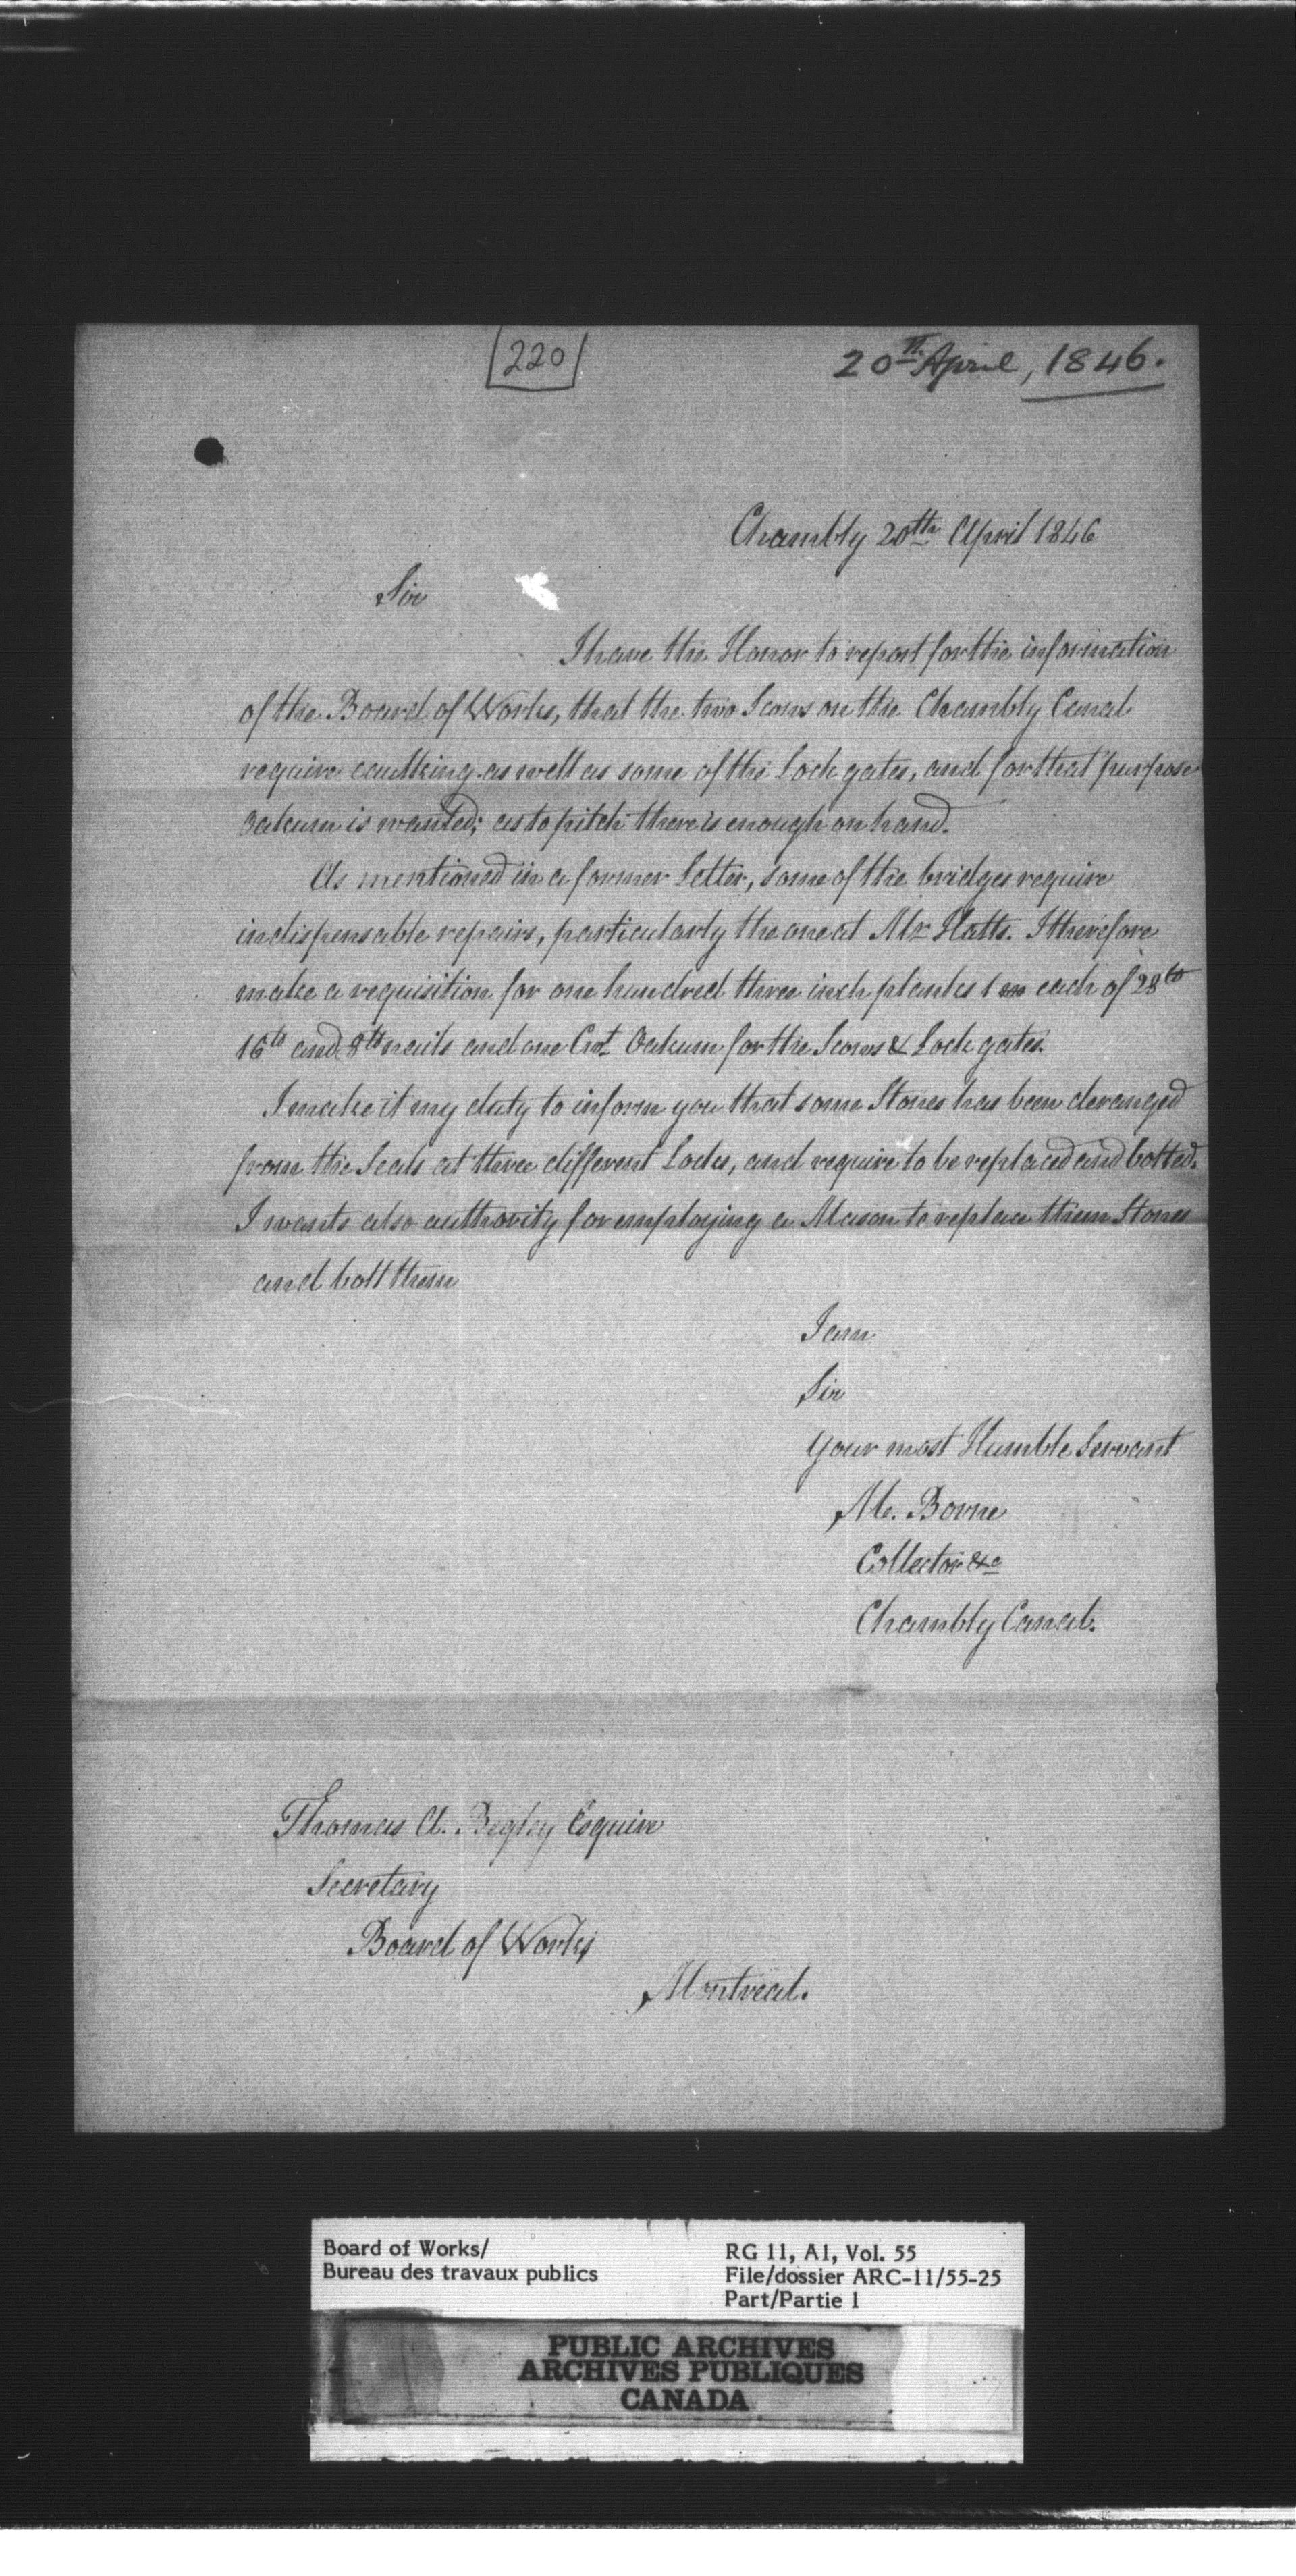 220
20th April, 1846.
Chambly 20th April 1846
Sir
I have the Honor to report for the information
of the Board of Works, that the two Scows on the Chambly Canal
require caulking as well as some of the Lock gates, and for that purpose
Oakum is wanted; as to pitch there is enough on hand.
As mentioned in a former Letter, some of the bridges require
indispensable repairs, particularly the one at Mr Hatts. I therefore
make a requisition for one hundred three inch planks 1 m each of 28 lb
16 lb and 8 lb nails and one Cwt Oakum for the Scows & Lock gates.
I make it my duty to inform you that some Stones has been deranged
from the Seals at three different Locks, and require to be replaced and bolted.
I wants also authority for employing a Mason to replace them Stones
and bolt them
I am
Sir
Your most Humble Servant
M. Borne
Collector &c
Chambly Canal.
Thomas A. Begley Esquire
Secretary
Board of Works
Montreal.
Board of Works/
Bureau des travaux publics
RG 11, A1, Vol. 55
File/dossier ARC-11/55-25
Part/Partie 1
PUBLIC ARCHIVES
ARCHIVES PUBLIQUES
CANADA